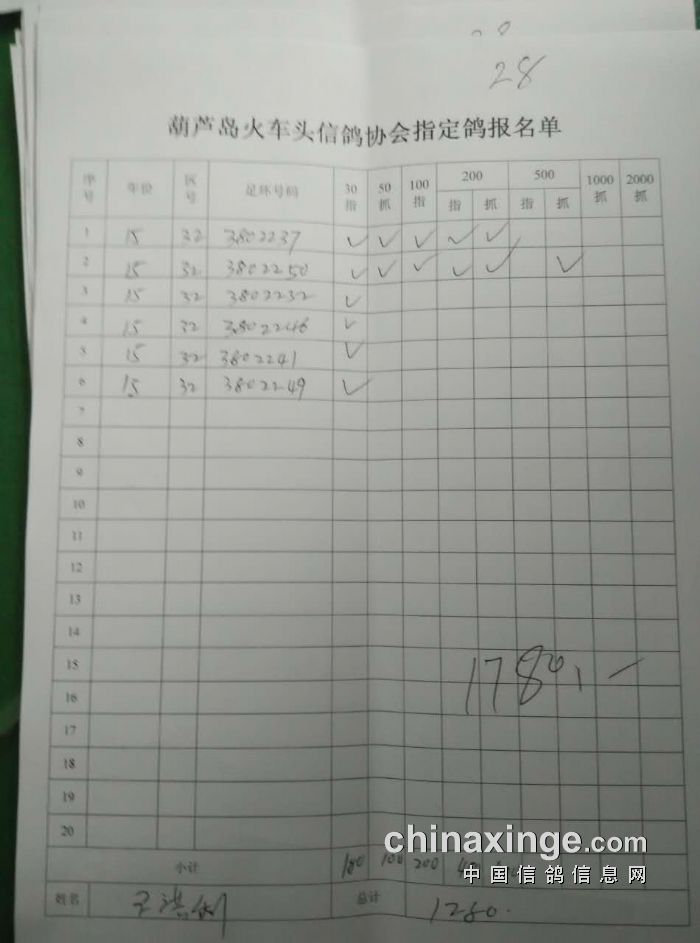 28
葫芦岛火车头信鸽协会指定鸽报名单
序号 年份 区号 足环号码 30指 50抓 100指 200 500 1000抓 2000抓
指 抓 指 抓
1 15 32 3802237 ✓ ✓ ✓ ✓ ✓
2 15 32 3802250 ✓ ✓ ✓ ✓ ✓ ✓
3 15 32 3802232 ✓
4 15 32 3802246 ✓
5 15 32 3802241 ✓
6 15 32 3802249 ✓
7
8
9
10
11
12
13
14
15
1780
16
17
18
19
20
chinaxinge.com
小计 180 100 200
中国信鸽信息网
姓名 总计 1280.